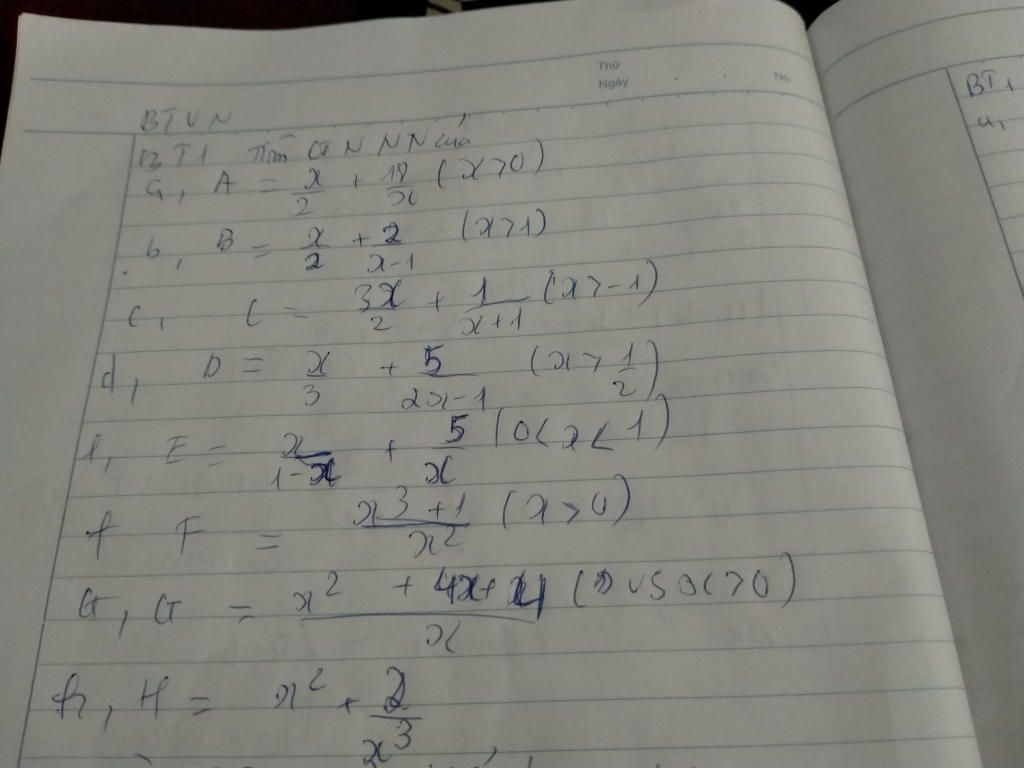 Thứ
Ngày No
BTVN
BT1 Tìm GTNNN của
a, A = x/2 + 18/x (x>0)
b, B = x/2 + 2/x-1 (x>1)
c, C = 3x/2 + 1/x+1 (x>-1)
d, D = x/3 + 5/2x-1 (x>1/2)
l, E = x/1-x + 5/x (0<x<1)
f F = x³+1/x² (x>0)
G, G = x²+4x+4/x (x>0)
h, H = x² + 2/x³
BT1
a,